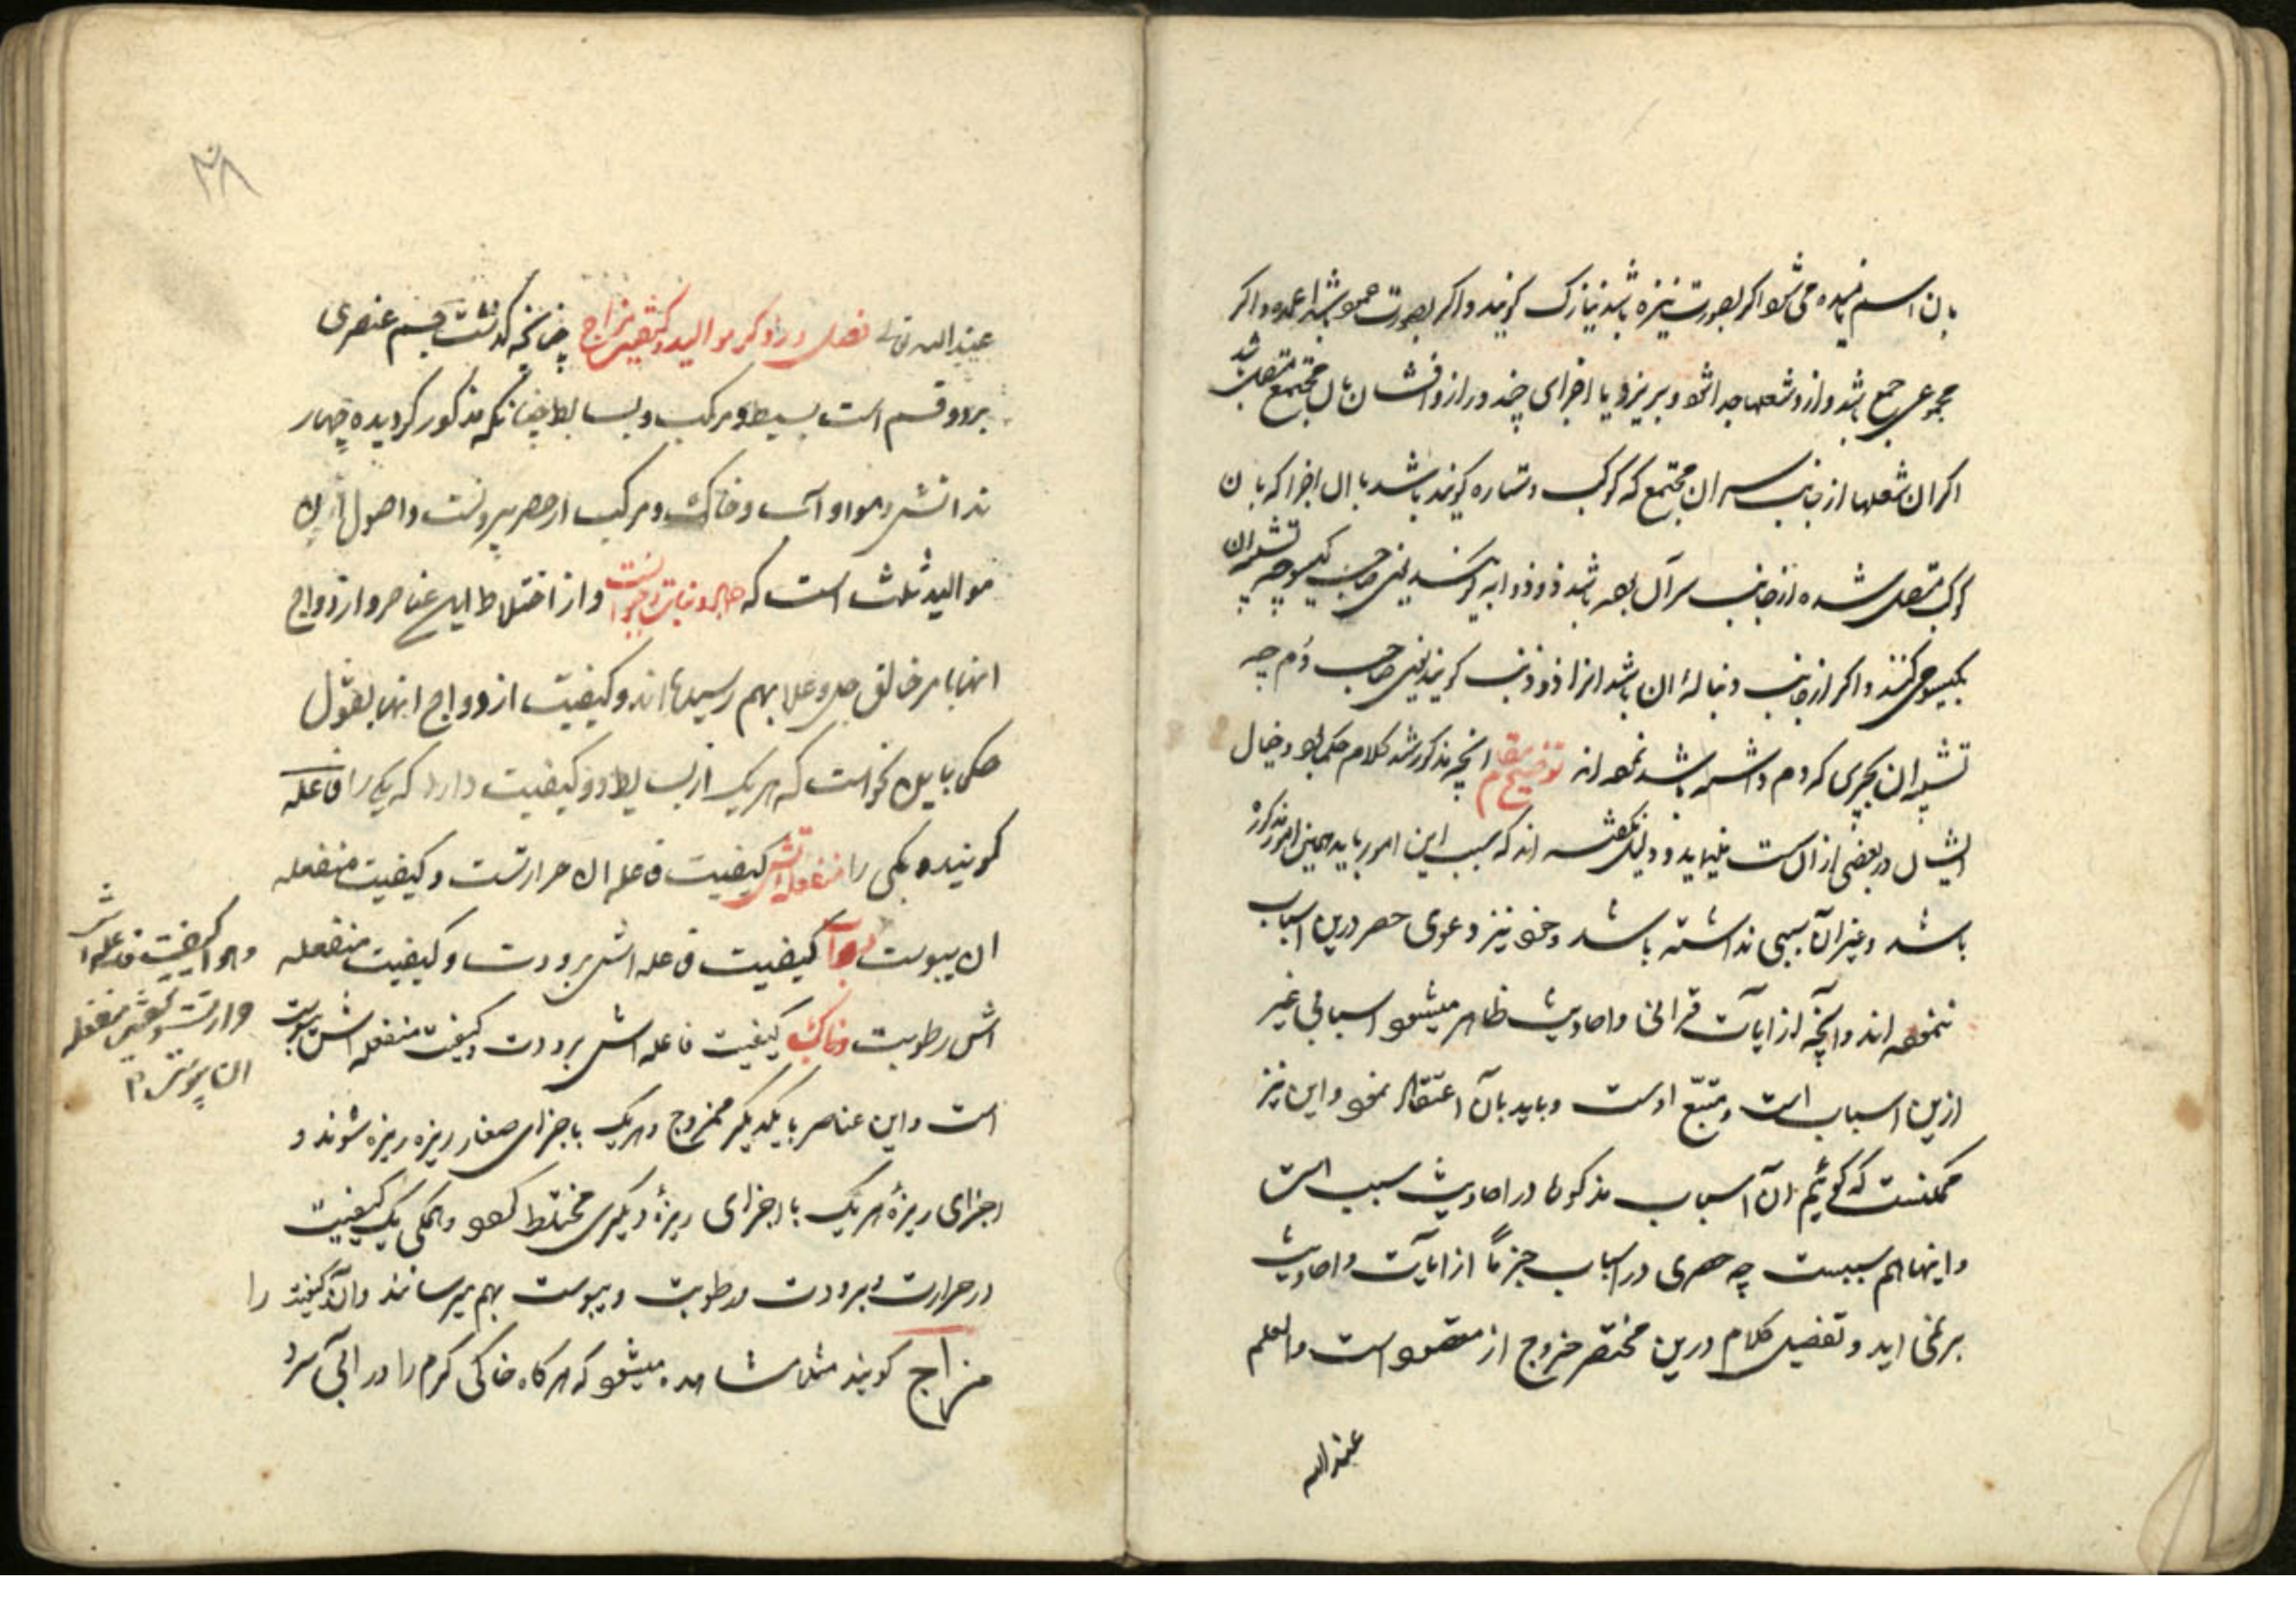 بان اسم نامیده می شود اکر بصورت نیزه باشد نیازک کویند و اکر بصورت عمود باشد اعمده و اکر
مجموعی جمع باشد و ازو شعلها جدا شود و بریزد یا اجزای چند دراز و افشان بآن مجتمع متصل باشد
اکر ان شعلها از جانب سر ان مجتمع که کوکب و ستاره کویند باشد یا آن اجزا که بان
کوکب متصل شده از جانب سر آن بوده باشد ذو ذوابه کویند یعنی صاحب کیسو چه تشبیه ان
بکیسو می کنند و اکر از جانب دنبالهٔ ان باشد انرا ذو ذنب کویند یعنی صاحب دُم چه
تشبیه ان بچیزی که دم داشته باشد نموده اند توضیح مقام انچه مذکور شد کلام حکما بود و خیال
ایشان در بعضی از ان است میاید و دلیل نکفته اند که سبب این امور باید همین امور مذکوره
باشد و غیر ان سببی نداشته باشد و خود نیز دعوی حصر درین اسباب
ننموده اند و آنچه از ایات قرانی و احادیث ظاهر میشود اسبابی غیر
ازین اسباب است و متبّع اوست و باید بآن اعتقاد نمود و این نیز
ممکنست که کوئیم ان آسباب مذکوره در احادیث سبب است
و اینها هم سببست چه حصری در اسباب جزماً از ایات و احادیث
بر نمی اید و تفصیل کلام درین مختصر خروج از مقصود است والعلم
عندالله
۲۸
عندالله تعالی فصل در ذکر موالید و کیفیت مزاج چنانچه کذشت جسم عنصری
بر دو قسم است بسیط و مرکب و بسایط چنانکه مذکور کردیده چهار
ند اتش و هوا و آب و خاک و مرکب از حصر بیرونست و اصول ان
موالید ثلث است که جماد و نبات و حیوانست و از اختلاط این عناصر و ازدواج
انها بامر خالق جل و علا بهم رسیده اند و کیفیت ازدواج انها بقول
حکما باین نحو است که هر یک از بسایط دو کیفیت دارد که یکی را فاعله
کویند و یکی را منفعله اتش کیفیت فاعله ان حرارتست و کیفیت منفعله
ان یبوست و آب کیفیت فاعله اش برودت و کیفیت منفعله
اش رطوبت و خاک کیفیت فاعله اش برودت و کیفیت منفعله اش یبوست
است و این عناصر با یکدیکر ممزوج و هر یک باجزای صغار ریزه ریزه شوند و
اجزای ریزهٔ هر یک با اجزای ریزهٔ دیکری مختلط کردد و همکی یک کیفیت
در حرارت و برودت و رطوبت و یبوست بهم میرسانند و ان کیفیت را
مزاج کویند مثلا مشاهده میشود که هر کاه خاکی کرم را در ابی سرد
و هوا کیفیت فاعله اش
حرارتست و کیفیت منفعله
ان